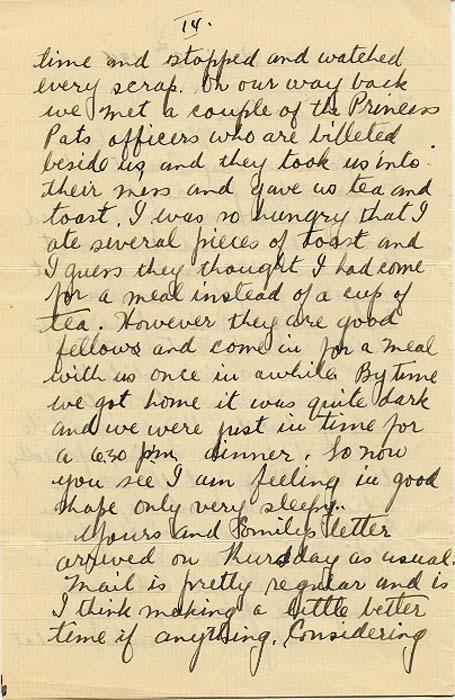 14.
time and stopped and watched
every scrap. On our way back
we met a couple of the Princess
Pats officers who are billeted
beside us, and they took us into
their mess and gave us tea and
toast. I was so hungry that I
ate several pieces of toast and
I guess they thought I had come
for a meal instead of a cup of
tea. However they are good
fellows and come in for a meal
with us once in awhile. By time
we got home it was quite dark
and we were just in time for
a 6.30 p.m. dinner. So now
you see I am feeling in good
shape only very sleepy..
Yours and Emilys letter
arrived on Thursday as usual.
Mail is pretty regular and is
I think making a little better
time if anything. Considering